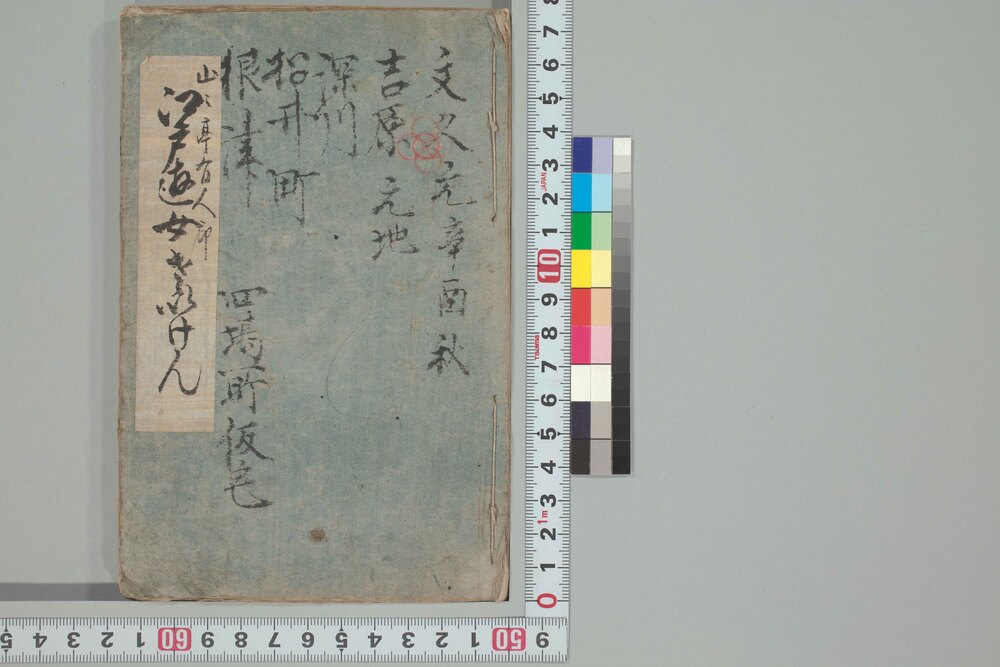 文久元辛酉秋
吉原元地
深川
松井町
根津
四場所仮宅
山々亭有人印
江戸遊女きけん
8 7 6 5 4 3 2 1 10 9 8 7 6 5 4 3 2 1 0
JAPAN
Tajima
1m
5 4 3 2 1 60 9 8 7 6 5 4 3 2 1 50 9